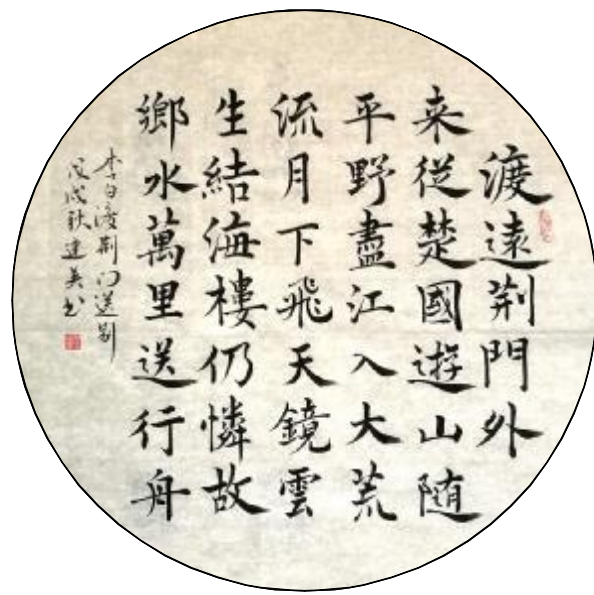 渡遠荆門外
来從楚國遊山随
平野盡江入大荒
流月下飛天鏡雲
生結海樓仍憐故
鄉水萬里送行舟
李白渡荆门送别
戊戌秋建英书